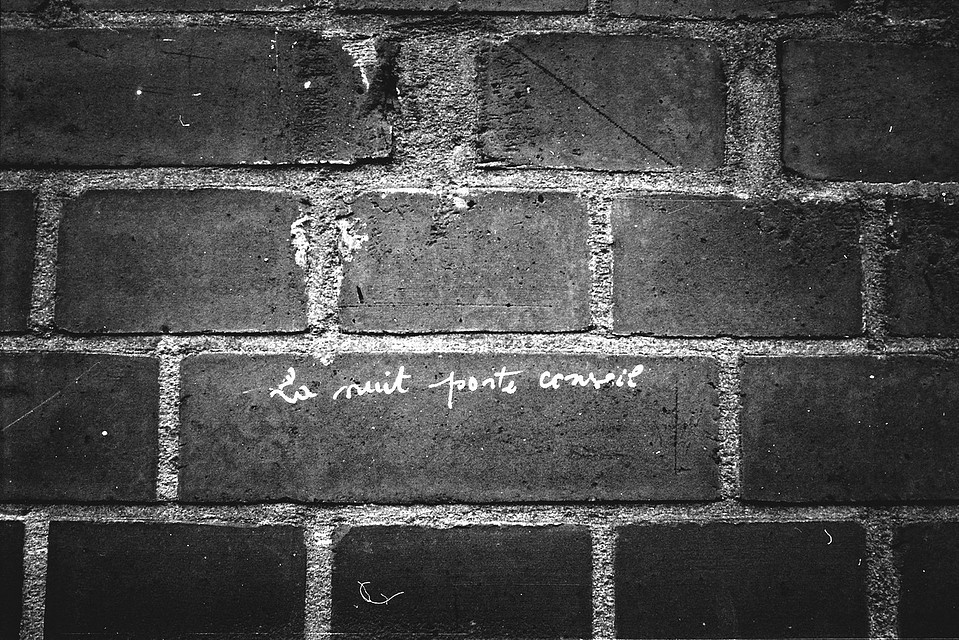 La nuit porte conseil